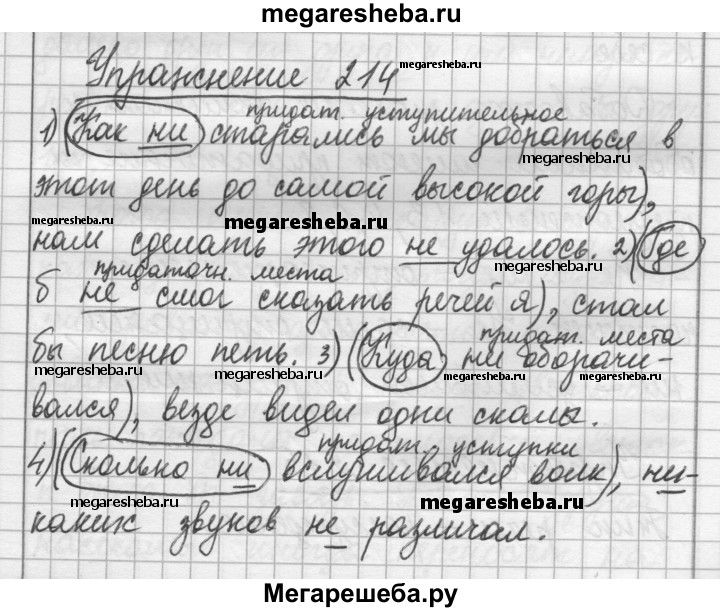 megaresheba.ru
Упражнение 214 megaresheba.ru
придат. уступительное
1) (Как ни старались мы добраться в
megaresheba.ru megaresheba.ru
этот день до самой высокой горы),
megaresheba.ru megaresheba.ru megaresheba.ru
нам сделать этого не удалось. 2) (Где
придаточн. места
б не смог сказать речей я), стал
придат. места
бы песню петь. 3) (Куда ни оборачи-
megaresheba.ru megaresheba.ru megaresheba.ru megaresheba.ru
вался), везде видел одни скалы.
придат. уступки
4) (Сколько ни вслушивался волк), ни-
megaresheba.ru megaresheba.ru
каких звуков не различал.
Мегарешеба.ру